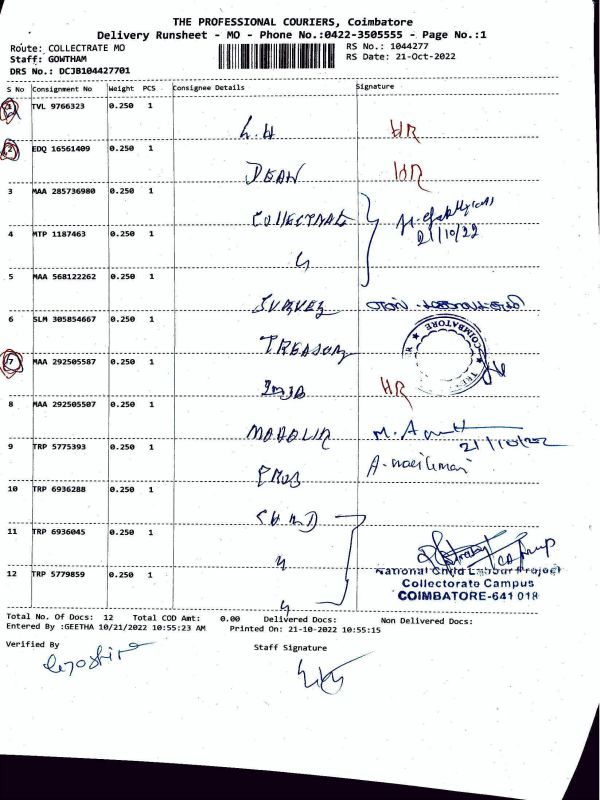 THE PROFESSIONAL COURIERS, Coimbatore
Delivery Runsheet - MO - Phone No.:0422-3505555 - Page No.:1
Route: COLLECTRATE MO
RS No.: 1044277
Staff: GOWTHAM
RS Date: 21-Oct-2022
DRS No.: DCJB104427701
S No Consignment No Weight PCS Consignee Details Signature
1 TVL 9766323 0.250 1
L.H HR
2 EDQ 16561409 0.250 1
DEAN HR
3 MAA 285736980 0.250 1
COLLECTRATE
21/10/22
4 MTP 1187463 0.250 1
5 MAA 568122262 0.250 1
SURVEY
6 SLM 305854667 0.250 1
COIMBATORE
TREASORY
7 MAA 292505587 0.250 1
HR
8 MAA 292505507 0.250 1
M. A
9 TRP 5775393 0.250 1
A.
10 TRP 6936288 0.250 1
11 TRP 6936045 0.250 1
National Child Labour Project
12 TRP 5779859 0.250 1
Collectorate Campus
COIMBATORE-641 018
Total No. Of Docs: 12 Total COD Amt: 0.00 Delivered Docs: Non Delivered Docs:
Entered By :GEETHA 10/21/2022 10:55:23 AM Printed On: 21-10-2022 10:55:15
Verified By
Staff Signature